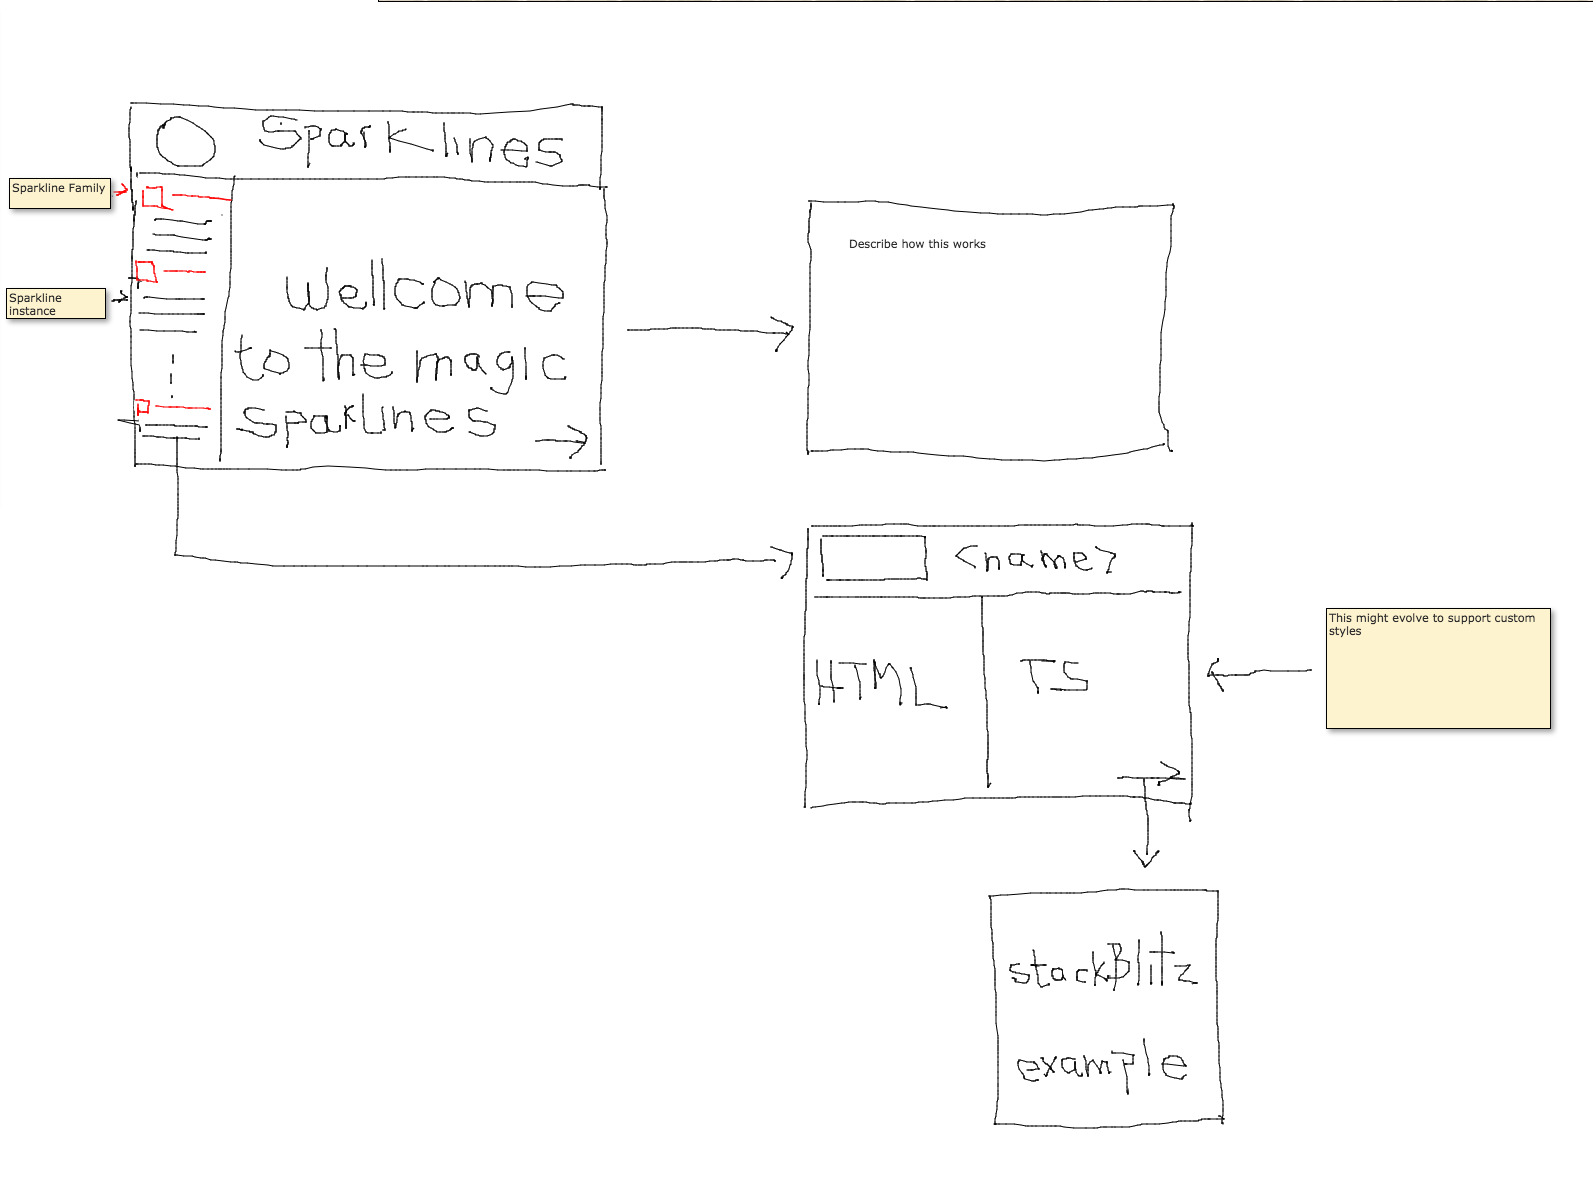 Sparklines
Sparkline Family
Sparkline
instance
Wellcome
to the magic
sparklines
Describe how this works
<name>
HTML
TS
This might evolve to support custom
styles
stackBlitz
example